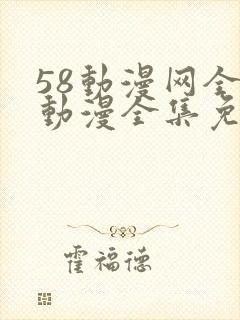 58動漫网全
動漫全集免
霍福德